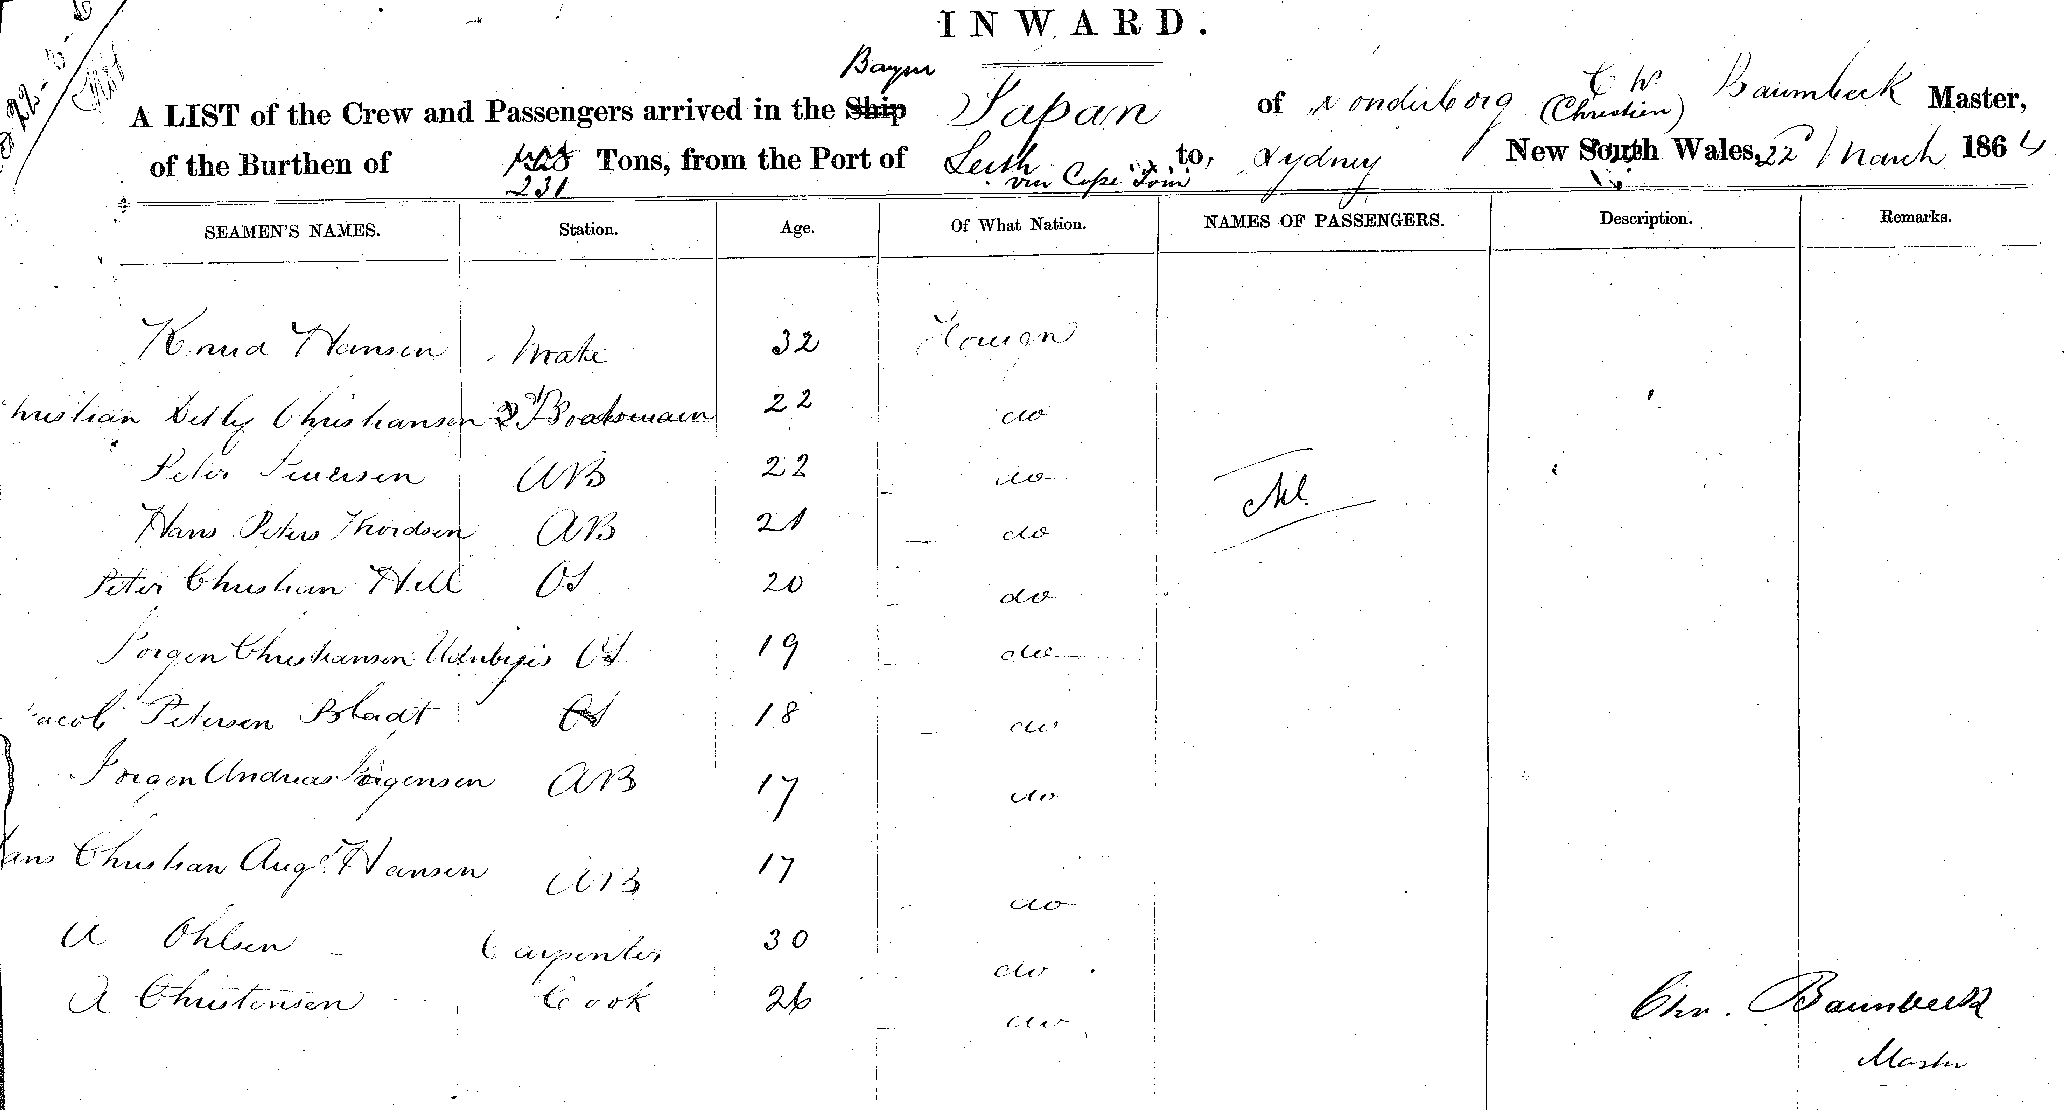 INWARD.
A LIST of the Crew and Passengers arrived in the Ship Japan of Sonderborg C W (Christien) Baumbeck Master,
of the Burthen of 231 Tons, from the Port of Leith via Cape Town to, Sydney New South Wales, 22 March 1864
SEAMEN'S NAMES. Station. Age. Of What Nation. NAMES OF PASSENGERS. Description. Remarks.
Knud Hansen Mate 32
Christian Christiansen 2 Boatsmaen 22 do
Peter Iversen AB 22 do
Nil.
Hans Peters Thordsen AB 21 do
Peter Christian Hell OS 20 do
Jorgen Christiansen OS 19 do
Jacob Petersen Bladt OS 18 do
Jorgen Andreas Jorgensen AB 17 do
Hans Christian Augt. Hansen AB 17 do
A Ohlsen Carpenter 30 do
A Christensen Cook 26 do
Chr. Baumbeck
Master